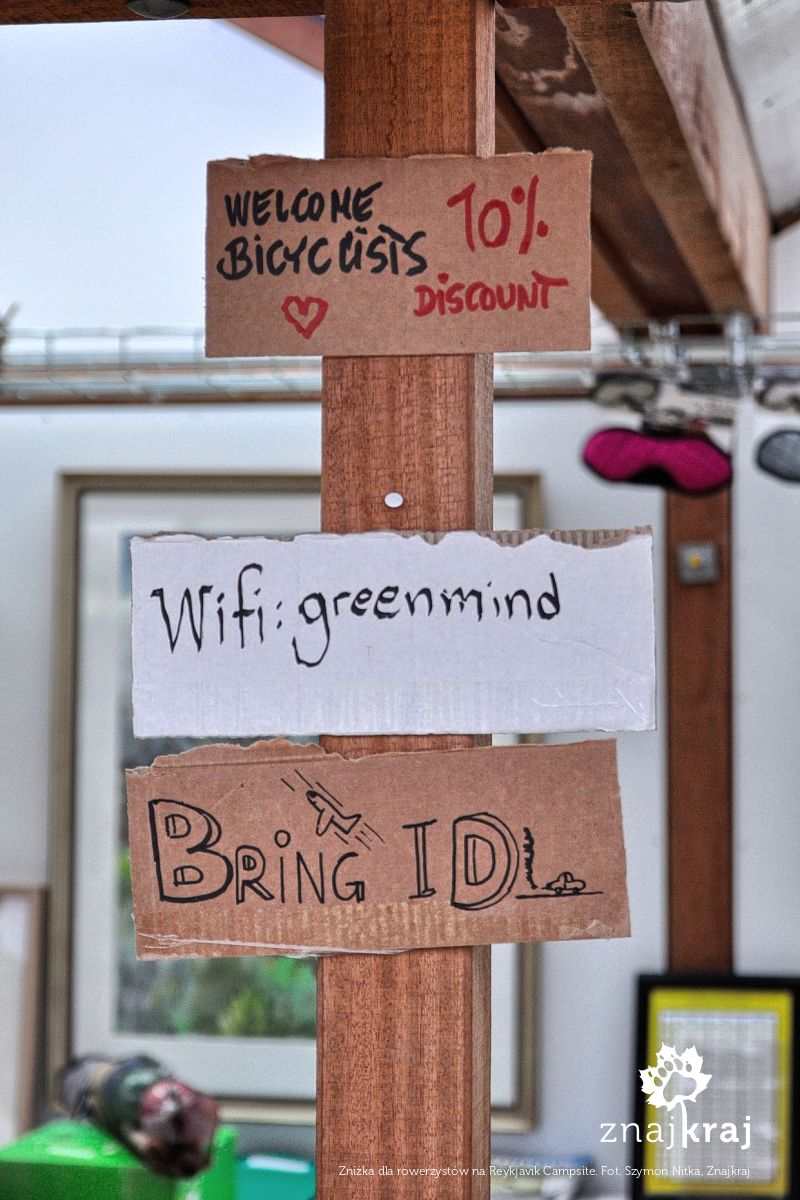 WELCOME
BICYCLISTS
10%
DISCOUNT
Wifi: greenmind
BRING ID
znajkraj
Zniżka dla rowerzystów na Reykjavik Campsite. Fot. Szymon Nitka, Znajkraj